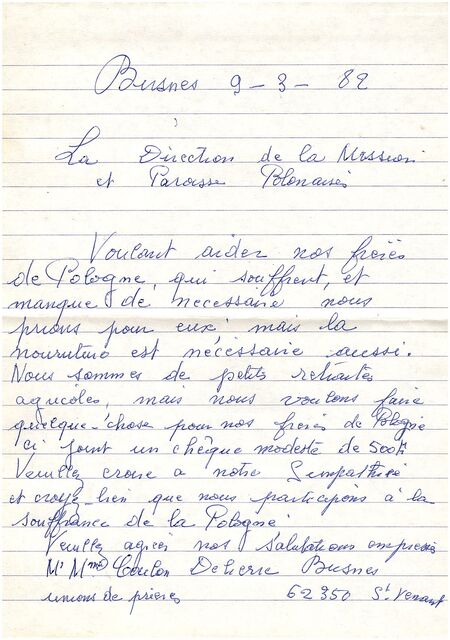 Busnes 9 - 3 - 82
La Direction de la Mission
et Paroisse Polonaises
Voulant aider nos frères
de Pologne, qui souffrent, et
manque de necessaire nous
prions pour eux mais la
nourriture est nécessaire aussi.
Nous sommes de petits retraités
agricoles, mais nous voulons faire
quelque-chose pour nos frères de Pologne
ci joint un chèque modeste de 500F
Veuillez croire a notre Simpathie
et croyez bien que nous participons à la
souffrance de la Pologne
Veuillez agréer nos salutations empressées
Mr Mme Coulon Busnes
unions de prières 62350 St Venant